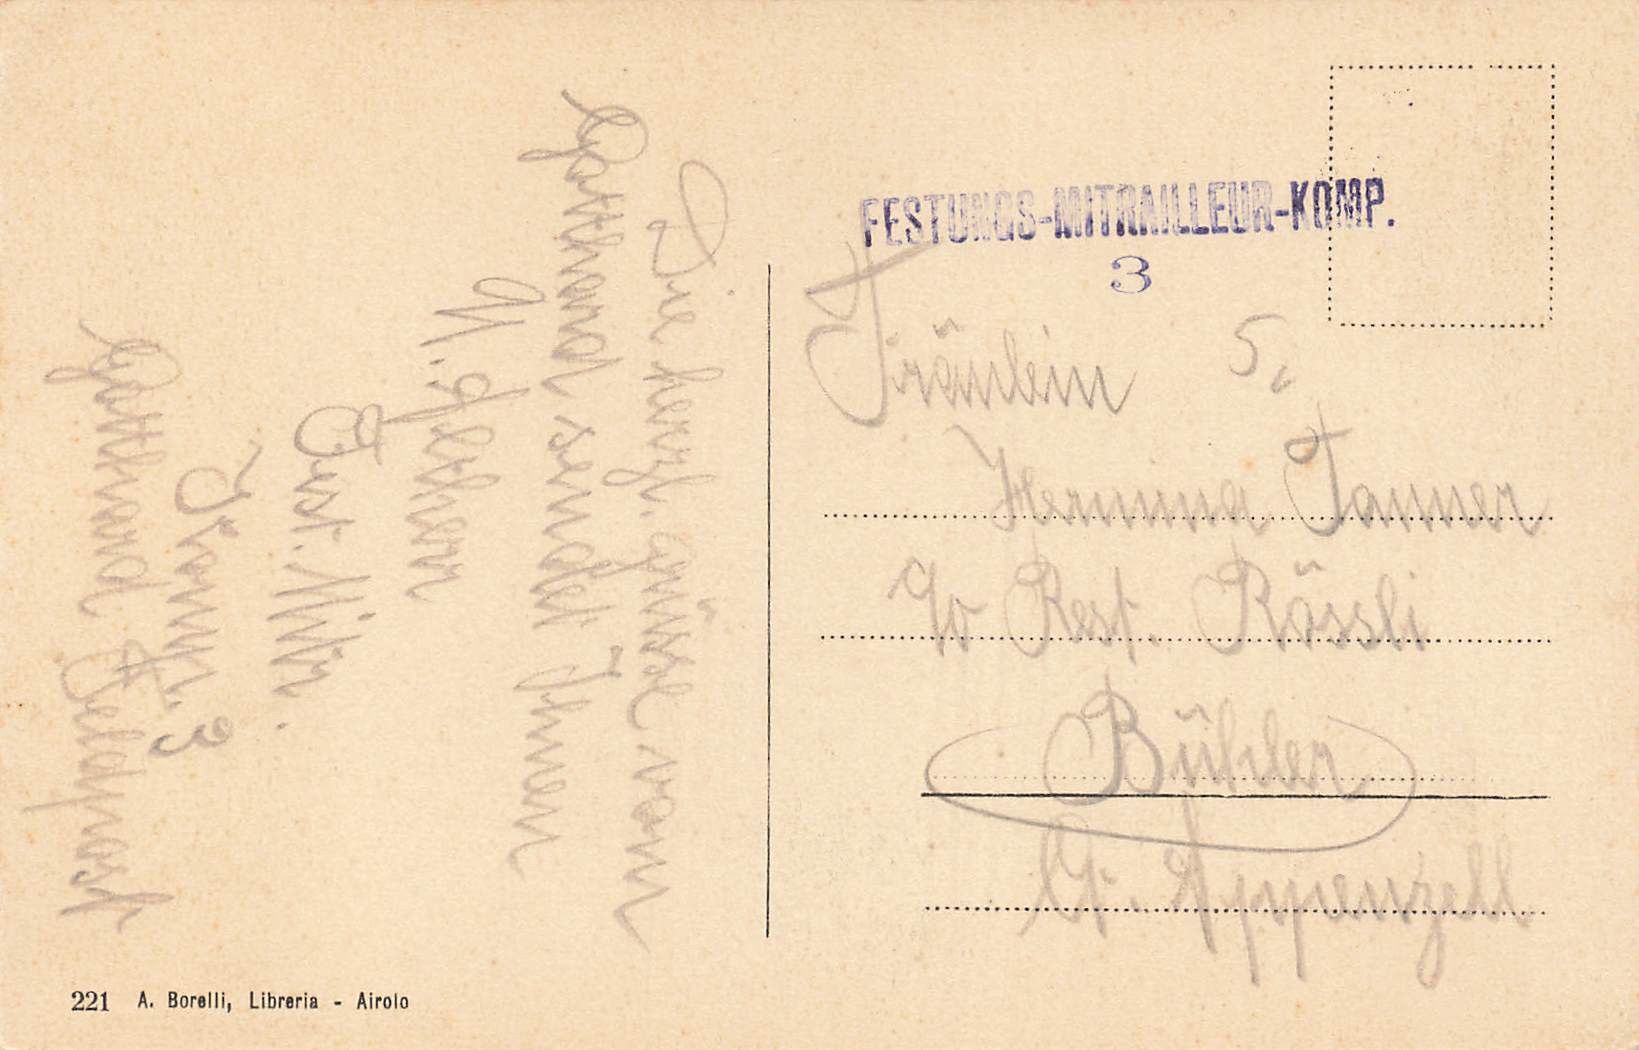 Die herzl. Grüsse vom
Gotthard sendet Ihnen
Fest. Mitr.
Komp. 3
Gotthard Feldpost
FESTUNGS-MITRAILLEUR-KOMP.
3
Fräulein
Hermina Tanner
c/o Rest. Rössli
Bühler
Ct. Appenzell
221 A. Borelli, Libreria - Airolo